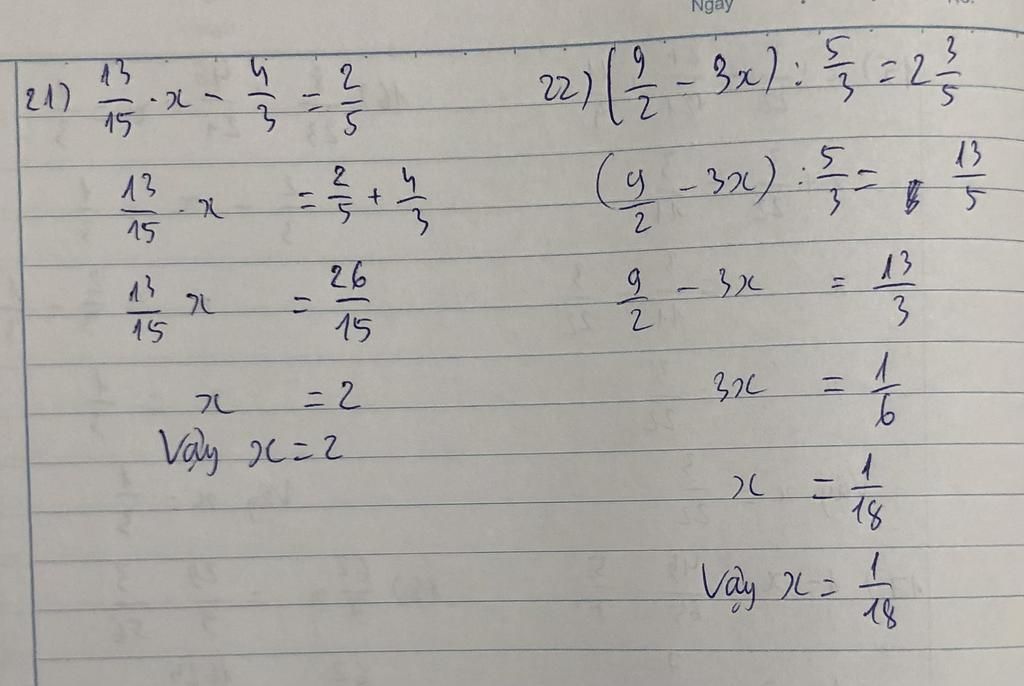 Ngày
No.
21) 13/15 · x - 4/3 = 2/5
13/15 · x = 2/5 + 4/3
13/15 x = 26/15
x = 2
Vậy x = 2
22) (9/2 - 3x) : 5/3 = 2 3/5
(9/2 - 3x) : 5/3 = 13/5
9/2 - 3x = 13/3
3x = 1/6
x = 1/18
Vậy x = 1/18